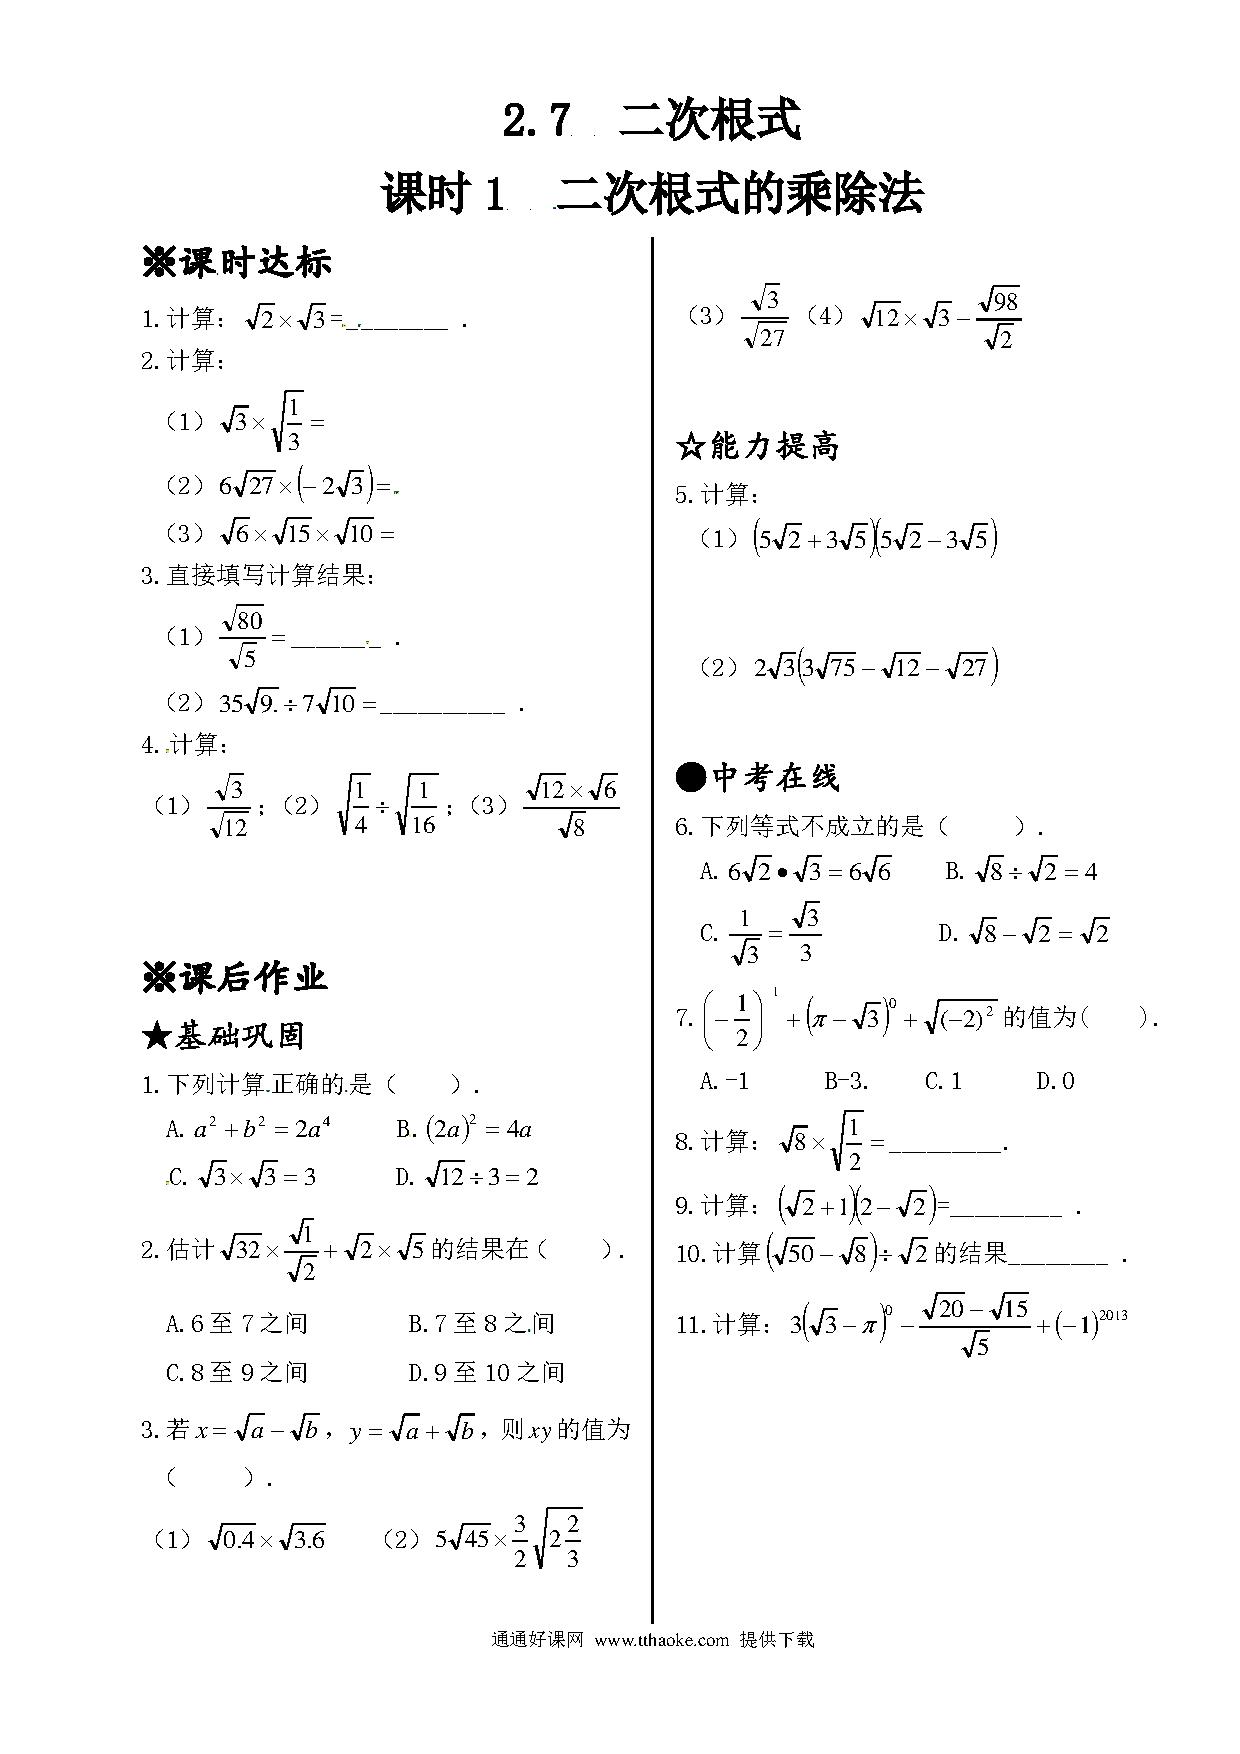 2.7 二次根式
课时1 二次根式的乘除法
※课时达标
1.计算：√2×√3=________．
2.计算：
（1）√3×√(1/3)=
（2）6√27×(−2√3)=
（3）√6×√15×√10=
3.直接填写计算结果：
（1）√80/√5=_______．
（2）35√9.÷7√10=__________．
4.计算：
（1）√3/√12；（2）√(1/4)÷√(1/16)；（3）(√12×√6)/√8
※课后作业
★基础巩固
1.下列计算正确的是（　　）.
A.a²+b²=2a⁴　B.(2a)²=4a
C.√3×√3=3　D.√12÷3=2
2.估计√32×√1/2+√2×√5的结果在（　　）.
A.6至7之间　B.7至8之间
C.8至9之间　D.9至10之间
3.若x=√a−√b，y=√a+√b，则xy的值为
（　　）.
（1）√0.4×√3.6　（2）5√45×3/2√(2 2/3)
（3）√3/√27　（4）√12×√3−√98/√2
☆能力提高
5.计算：
（1）(5√2+3√5)(5√2−3√5)
（2）2√3(3√75−√12−√27)
●中考在线
6.下列等式不成立的是（　　）.
A.6√2•√3=6√6　B.√8÷√2=4
C.1/√3=√3/3　D.√8−√2=√2
7.(−1/2)¹+(π−√3)⁰+√(−2)²的值为(　　).
A.-1　B-3.　C.1　D.0
8.计算：√8×√(1/2)=_________.
9.计算：(√2+1)(2−√2)=_________．
10.计算(√50−√8)÷√2的结果________．
11.计算：3(√3−π)⁰−(√20−√15)/√5+(−1)²⁰¹³
通通好课网 www.tthaoke.com 提供下载